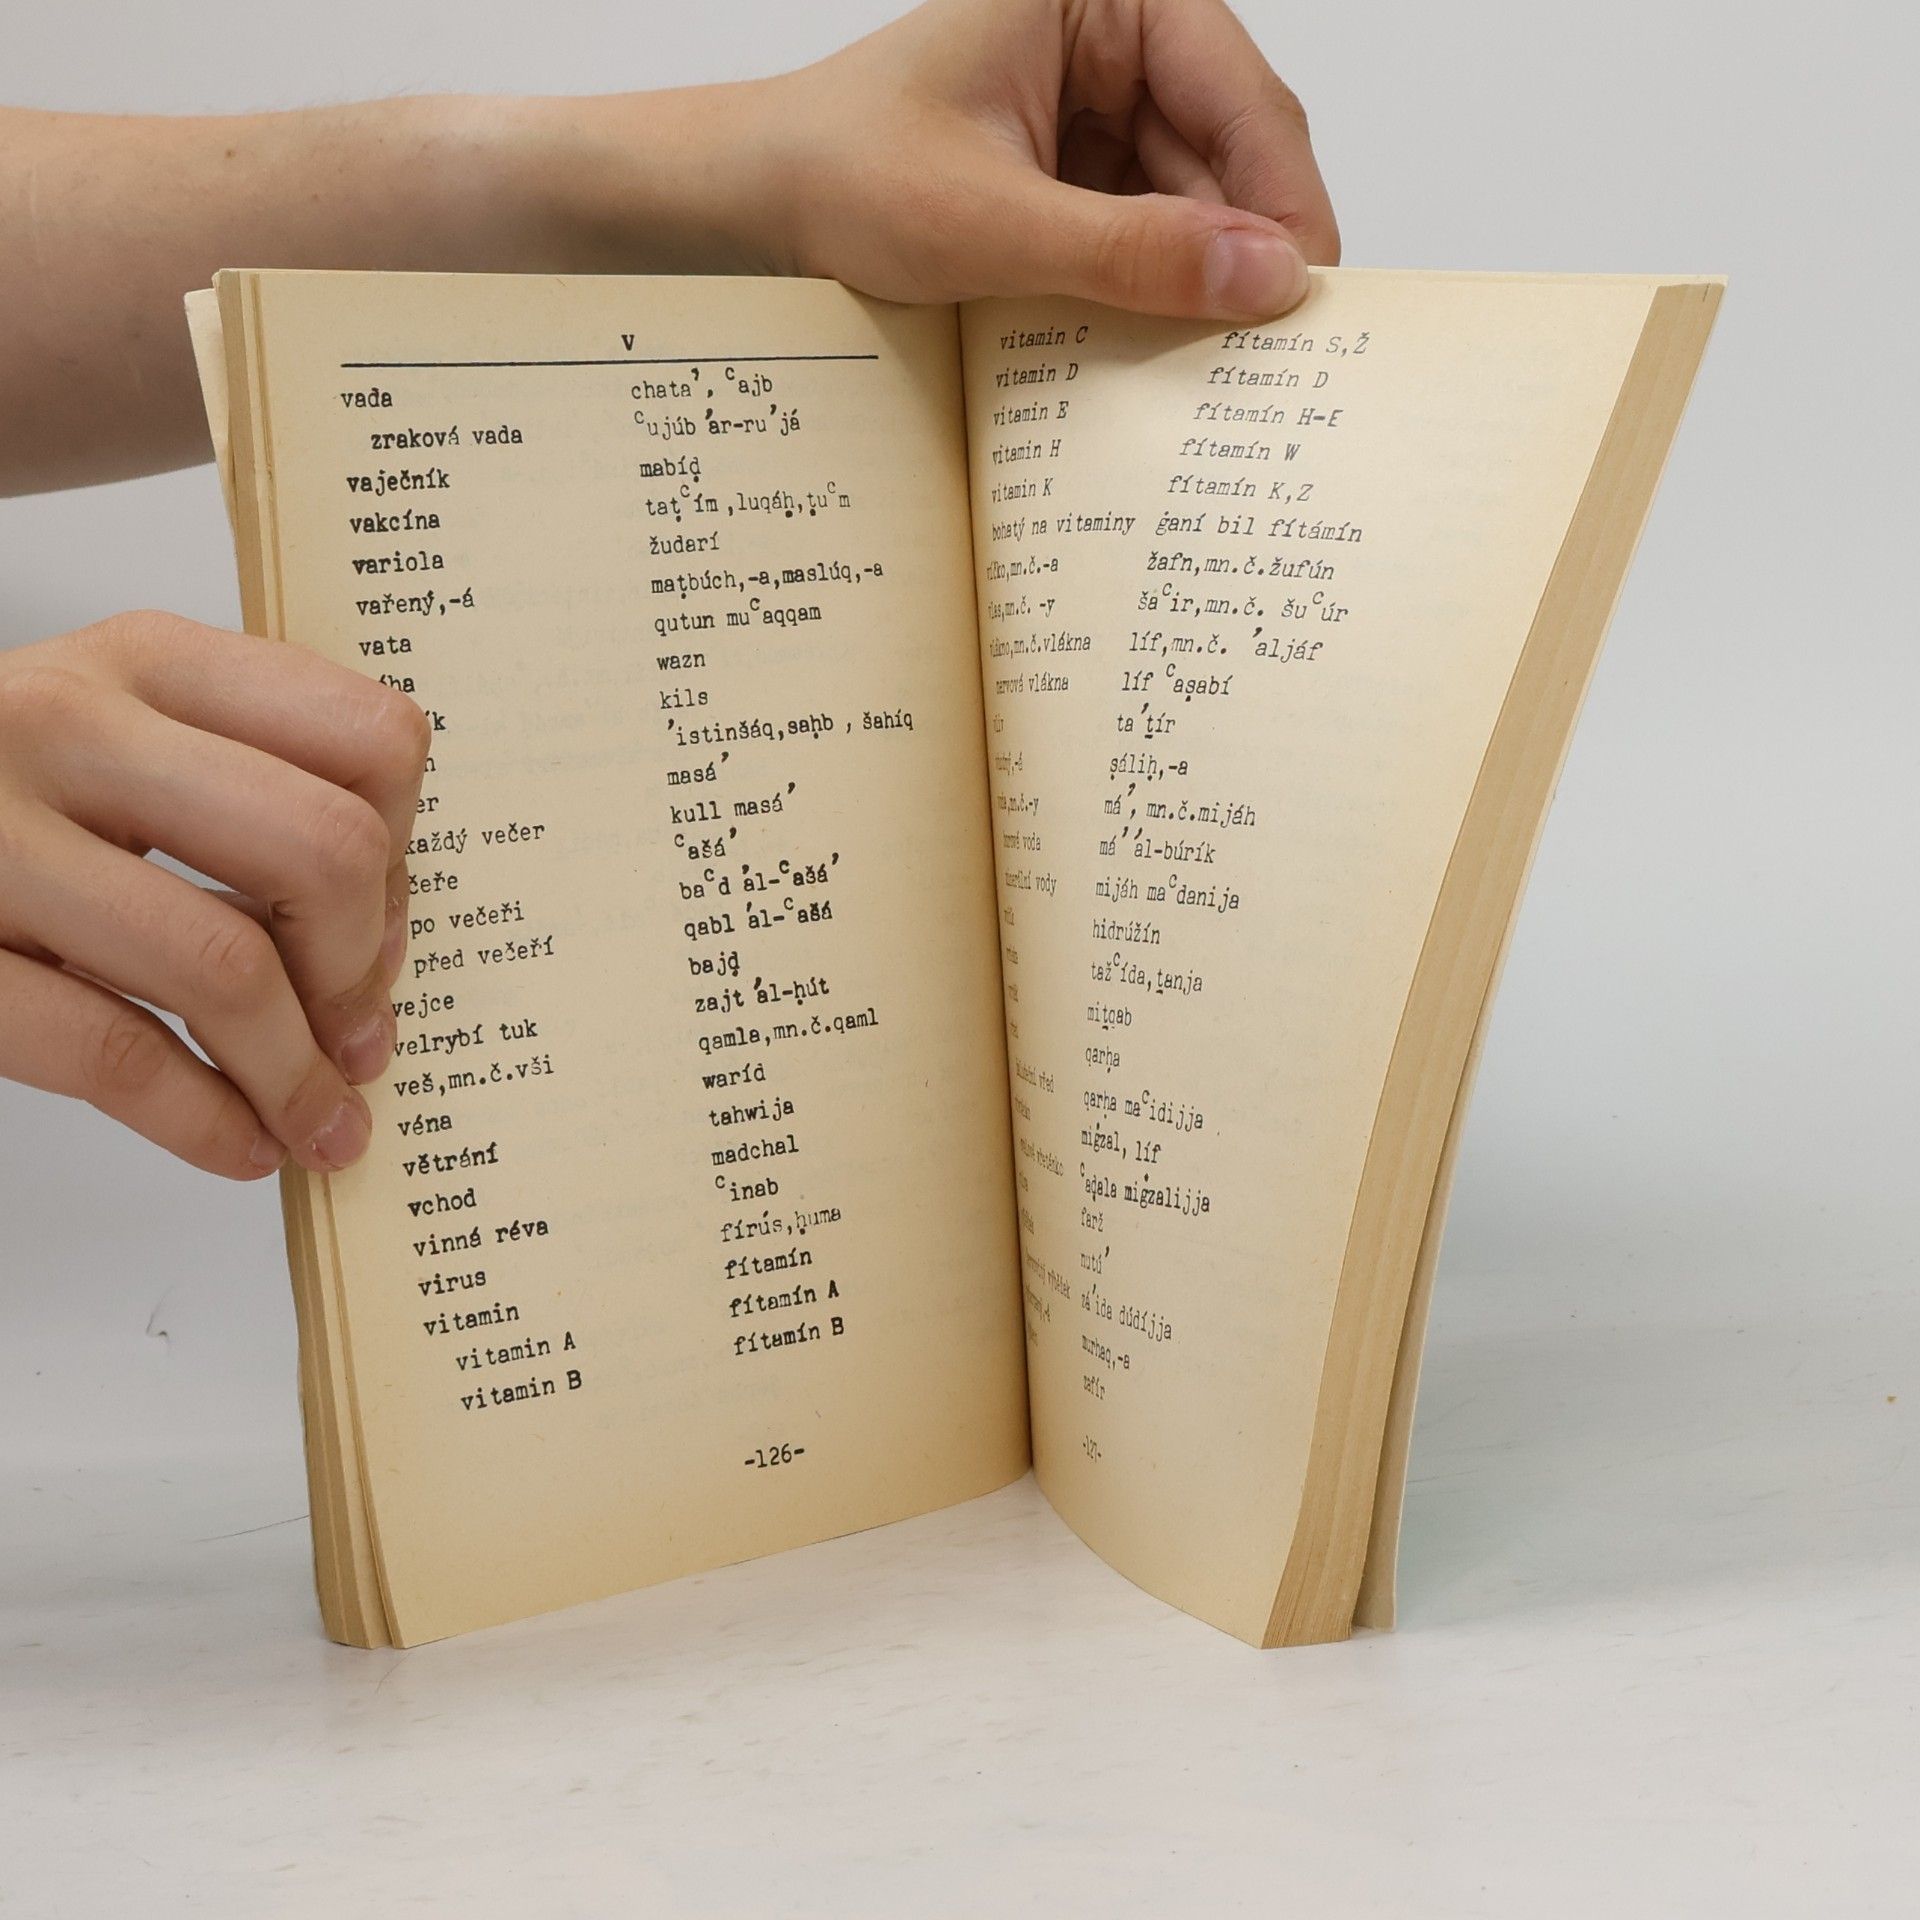 V
vada chata’, ᶜajb
zraková vada ᶜujúb ’ar-ru’já
vaječník mabíḍ
vakcína taṭᶜím ,luqáḥ,ṭuᶜm
variola žudarí
vařený,-á maṭbúch,-a,maslúq,-a
vata qutun muᶜaqqam
wazn
kils
’istinšáq,saḥb , šahíq
masá’
každý večer kull masá’
ᶜašá’
po večeři baᶜd ’al-ᶜašá’
před večeří qabl ’al-ᶜašá
vejce bajḍ
velrybí tuk zajt ’al-ḥút
veš,mn.č.vši qamla,mn.č.qaml
véna waríd
větrání tahwija
vchod madchal
vinná réva ᶜinab
virus fírús,ḥuma
vitamin fítamín
vitamin A fítamín A
vitamin B fítamín B
-126-
vitamin C fítamín S,Ž
vitamin D fítamín D
vitamin E fítamín H-E
vitamin H fítamín W
vitamin K fítamín K,Z
bohatý na vitaminy ġaní bil fítámín
víčko,mn.č.-a žafn,mn.č.žufún
vlas,mn.č. -y šaᶜir,mn.č. šuᶜúr
vlákno,mn.č.vlákna líf,mn.č. ’aljáf
nervová vlákna líf ᶜaṣabí
ta’ṯír
ṣáliḥ,-a
voda,mn.č.-y má’, mn.č.mijáh
borová voda má’ ’al-búrík
minerální vody mijáh maᶜdanija
hidrúžín
tažᶜída,ṯanja
miṯqab
qarḥa
žaludeční vřed qarḥa maᶜidijja
miġzal, líf
ᶜaḍala miġzalijja
farž
nutú’
zá’ida dúdíjja
murhaq,-a
zafír
-127-